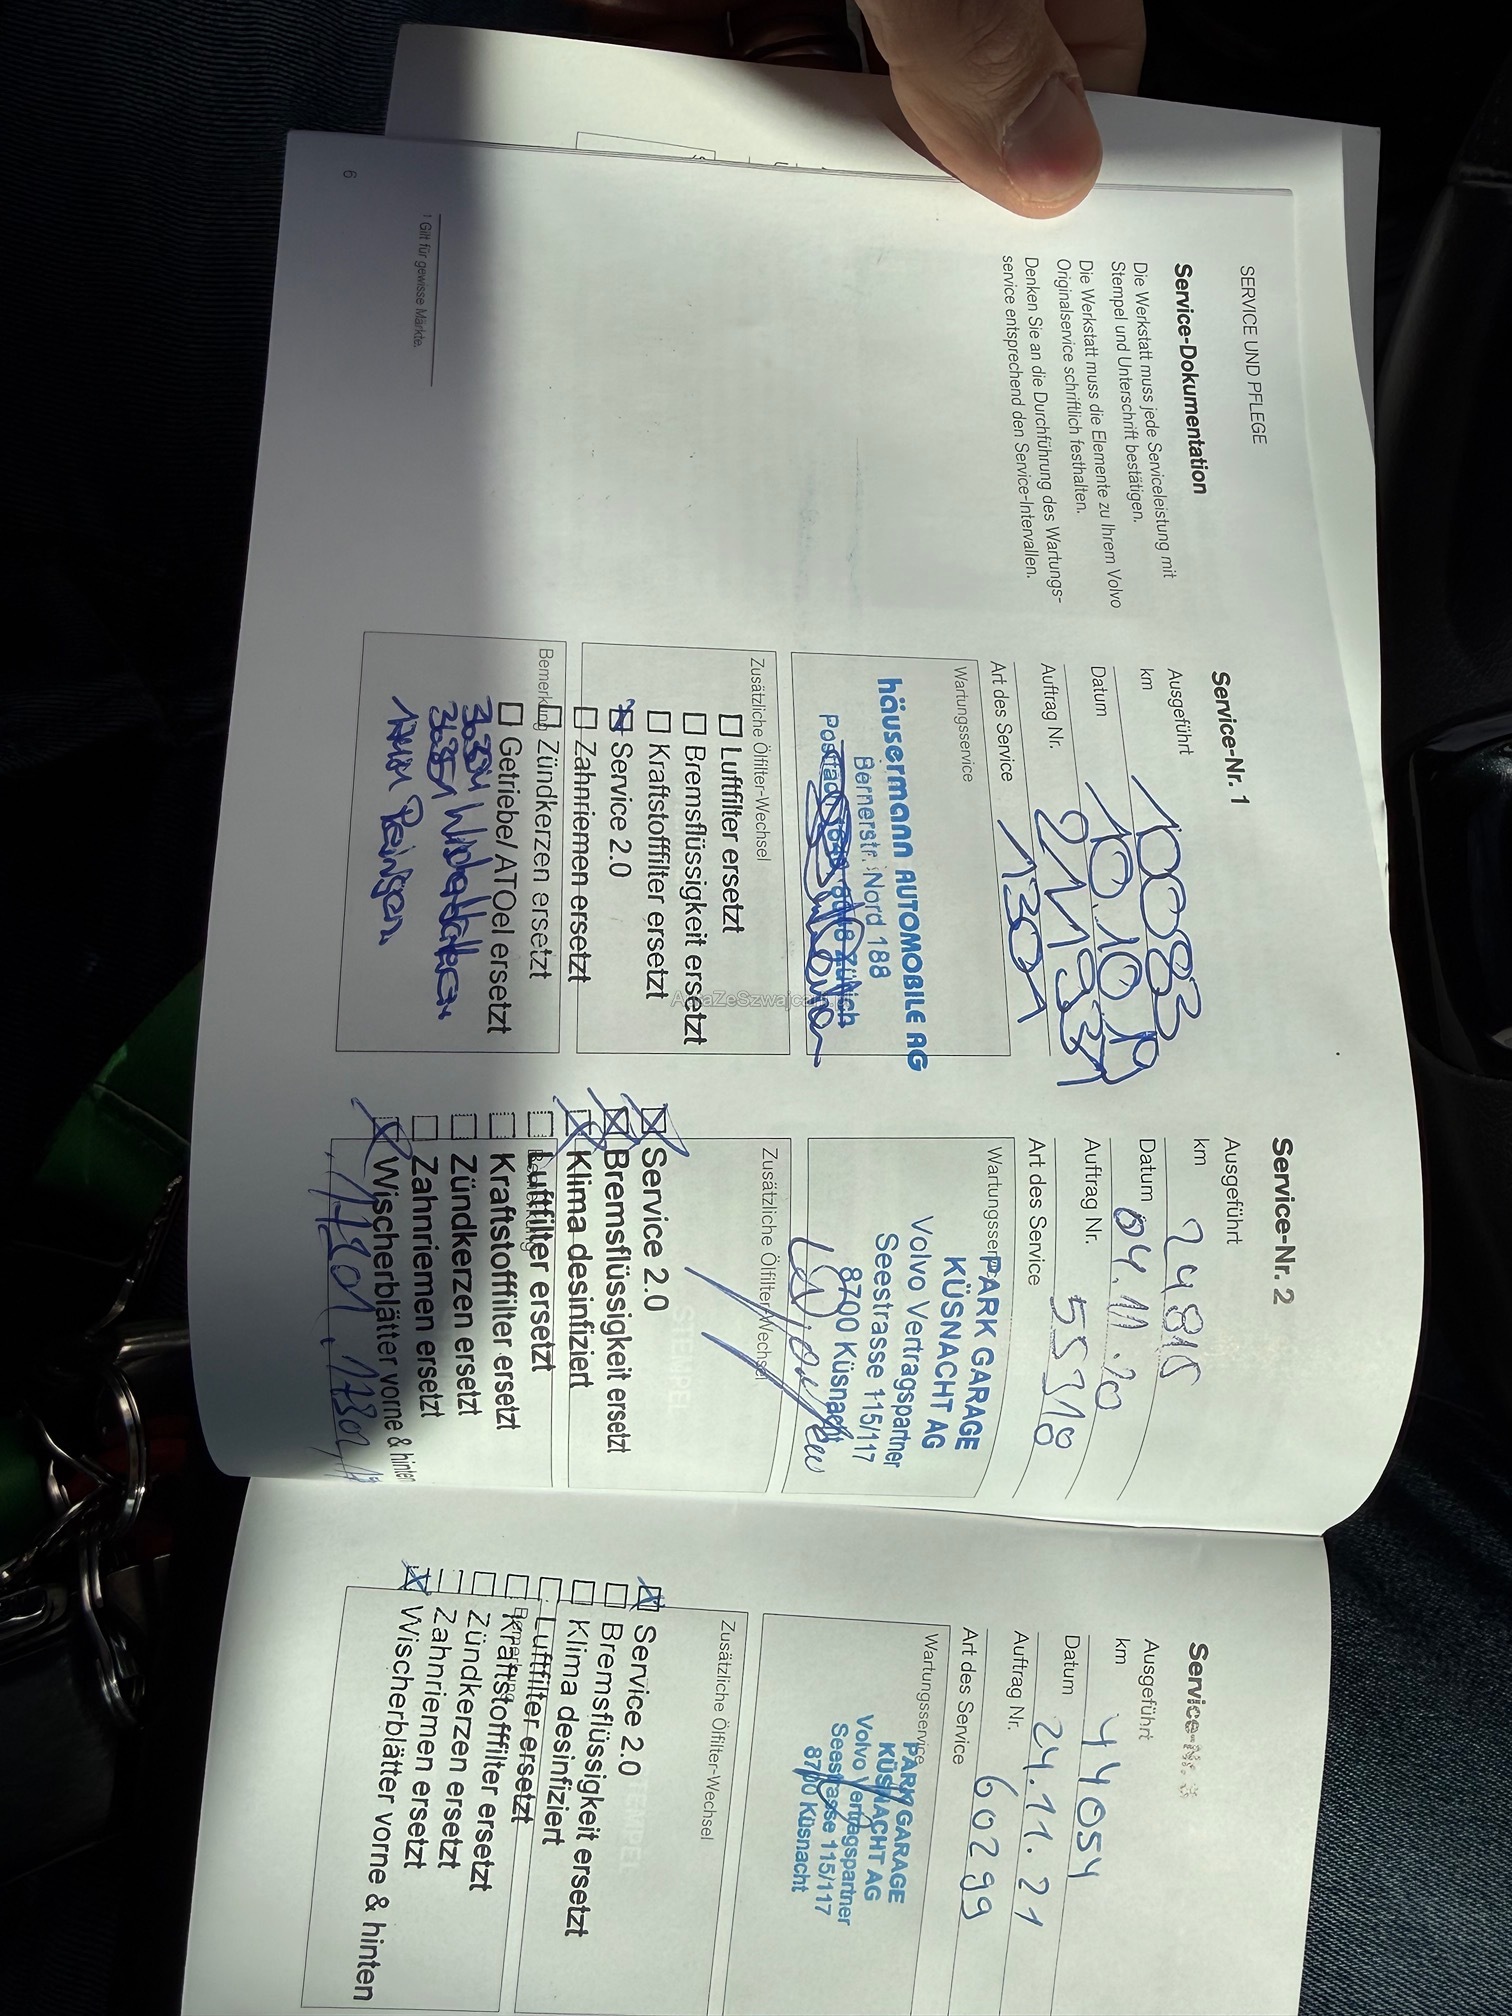 SERVICE UND PFLEGE
Service-Dokumentation
Die Werkstatt muss jede Serviceleistung mit
Stempel und Unterschrift bestätigen.
Die Werkstatt muss die Elemente zu Ihrem Volvo
Originalservice schriftlich festhalten.
Denken Sie an die Durchführung des Wartungs-
service entsprechend den Service-Intervallen.
¹ Gilt für gewisse Märkte.
6
Service-Nr. 1
Ausgeführt
km 10083
Datum 10.10.19
Auftrag Nr.
Art des Service
Wartungsservice
häusermann AUTOMOBILE AG
Bernerstr. Nord 188
Postfach 8048 Zürich
Zusätzliche Ölfilter-Wechsel
Luftfilter ersetzt
Bremsflüssigkeit ersetzt
Kraftstofffilter ersetzt
Service 2.0
Zahnriemen ersetzt
Zündkerzen ersetzt
Bemerkung
Getriebe/ ATOel ersetzt
Service-Nr. 2
Ausgeführt
km 24815
Datum 04.11.20
Auftrag Nr. 55310
Art des Service
Wartungsservice
PARK GARAGE
KÜSNACHT AG
Volvo Vertragspartner
Seestrasse 115/117
8700 Küsnacht
Zusätzliche Ölfilter-Wechsel
STEMPEL
Service 2.0
Bremsflüssigkeit ersetzt
Klima desinfiziert
Luftfilter ersetzt
Bemerkung
Kraftstofffilter ersetzt
Zündkerzen ersetzt
Zahnriemen ersetzt
Wischerblätter vorne & hinten
Service-Nr.
Ausgeführt
km 44054
Datum 24.11.21
Auftrag Nr. 60299
Art des Service
Wartungsservice
PARK GARAGE
KÜSNACHT AG
Volvo Vertragspartner
Seestrasse 115/117
8700 Küsnacht
Zusätzliche Ölfilter-Wechsel
STEMPEL
Service 2.0
Bremsflüssigkeit ersetzt
Klima desinfiziert
Luftfilter ersetzt
Kraftstofffilter ersetzt
Bemerkung
Zündkerzen ersetzt
Zahnriemen ersetzt
Wischerblätter vorne & hinten